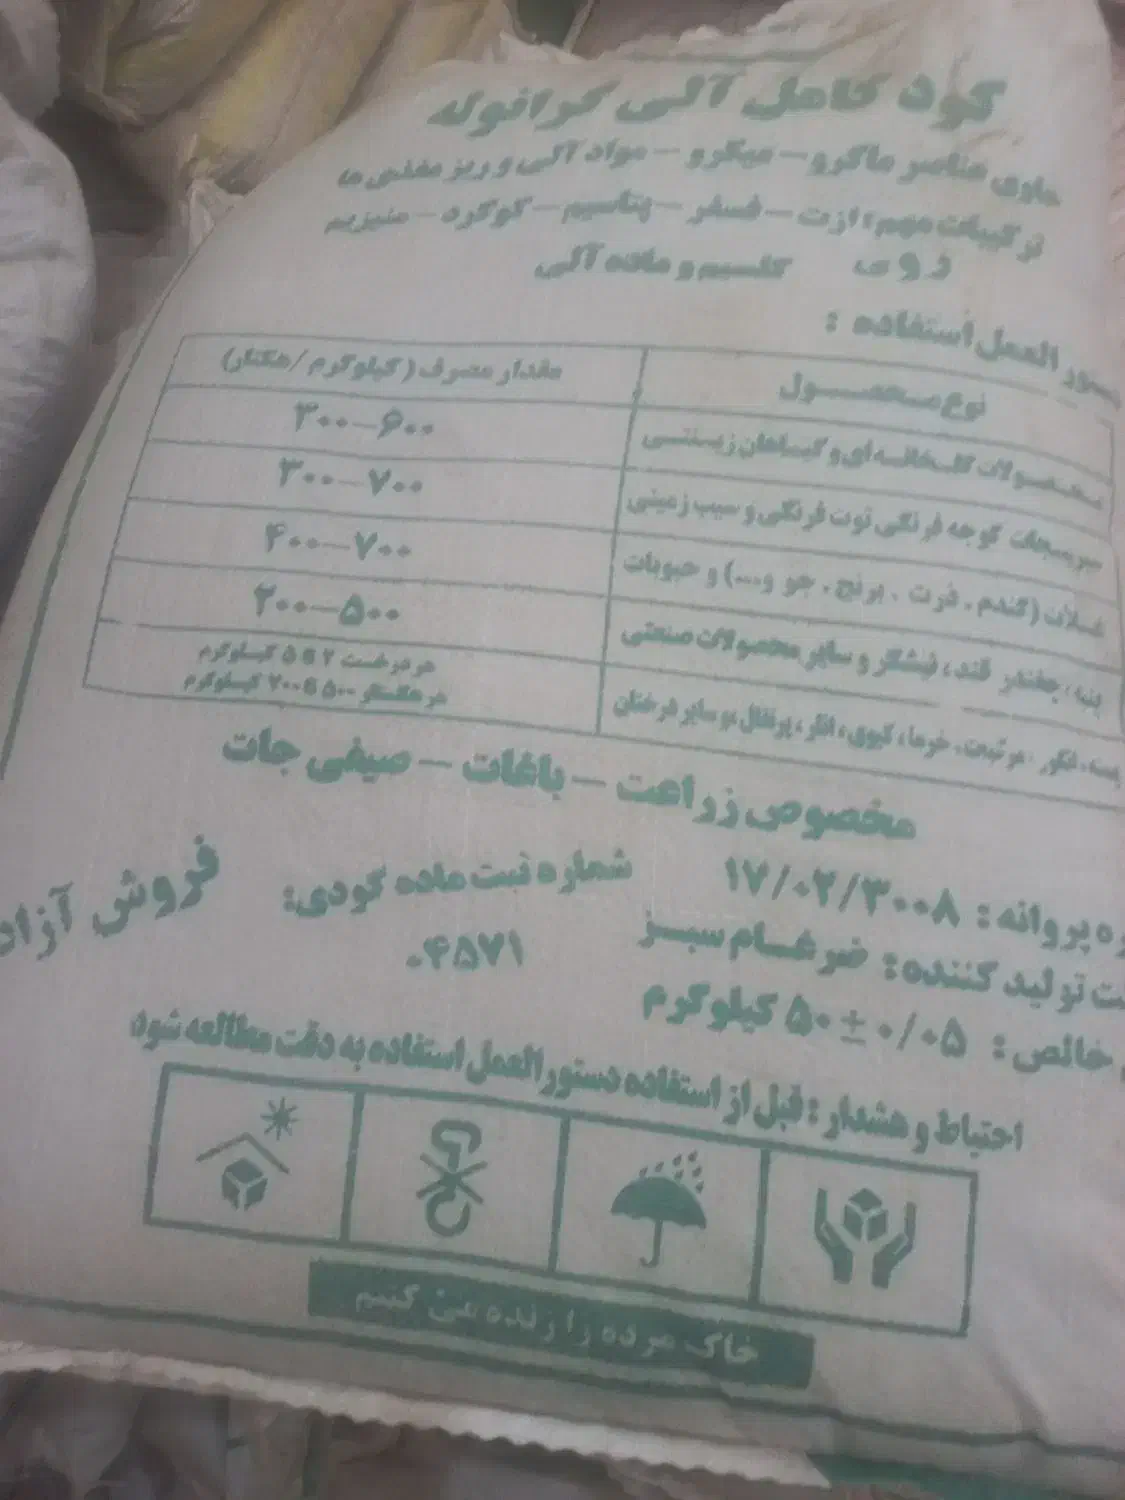 کود کامل آلی گرانوله
حاوی عناصر ماکرو – میکرو – مواد آلی و ریز مغذی ها
ترکیبات مهم: ازت – فسفر – پتاسیم – گوگرد – منیزیم
روی کلسیم و ماده آلی
العمل استفاده :
نوع محصول مقدار مصرف (کیلوگرم /هکتار)
محصولات گلخانه ای و گیاهان زینتی ۳۰۰–۶۰۰
سبزیجات گوجه فرنگی توت فرنگی و سیب زمینی ۳۰۰–۷۰۰
غلات (گندم ، ذرت ، برنج ، جو و...) و حبوبات ۴۰۰–۷۰۰
پنبه ، چغندر قند ، نیشکر و سایر محصولات صنعتی ۲۰۰–۵۰۰
پسته ، انگور ، مرکبات ، خرما ، کیوی ، انار ، پرتقال و سایر درختان هر درخت ۲ تا ۵ کیلوگرم
در هکتار ۵۰۰ تا ۷۰۰ کیلوگرم
مخصوص زراعت – باغات – صیفی جات
پروانه : ۱۷/۰۲/۳۰۰۸
شماره ثبت ماده کودی:
۰۴۵۷۱
فروش آزاد
تولید کننده : ضرغام سبز
خالص : ۵۰ ± ۰/۰۵ کیلوگرم
احتیاط و هشدار : قبل از استفاده دستور العمل استفاده به دقت مطالعه شود
خاک مرده را زنده می کنیم